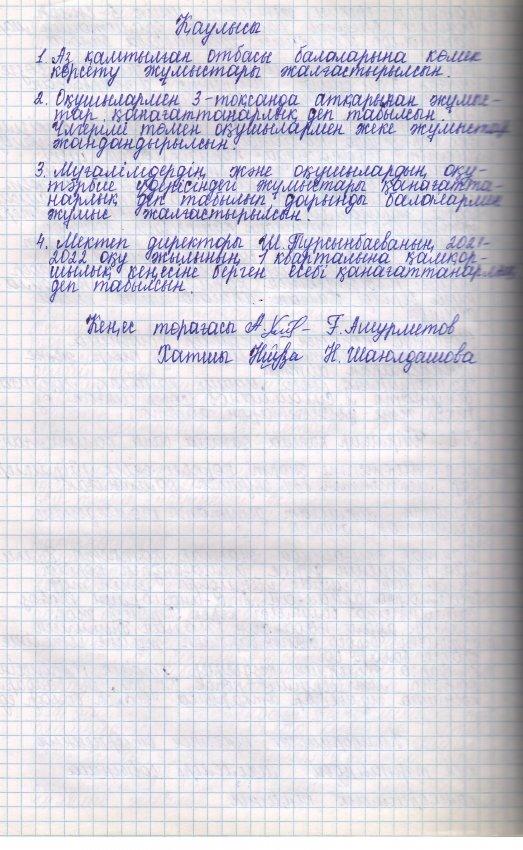 Қаулысы
1. Аз қамтылған отбасы балаларына көмек
көрсету жұмыстары жалғастырылсын.
2. Оқушылармен 3-тоқсанда атқарылған жұмыс-
тар қанағаттанарлық деп табылсын.
Үлгерімі төмен оқушылармен жеке жұмыстар
жандандырылсын.
3. Мұғалімдердің және оқушылардың оқу-
тәрбие үдерісіндегі жұмыстары қанағатта-
нарлық деп табылып дарынды балалармен
жұмыс жалғастырылсын.
4. Мектеп директоры Ш.Турсынбаеваның 2021-
2022 оқу жылының 1 кварталына қамқор-
шылық кеңесіне берген есебі қанағаттанарлық
деп табылсын.
Кеңес төрағасы Г.Ашурметов
Хатшы Н.Шаюлдашова